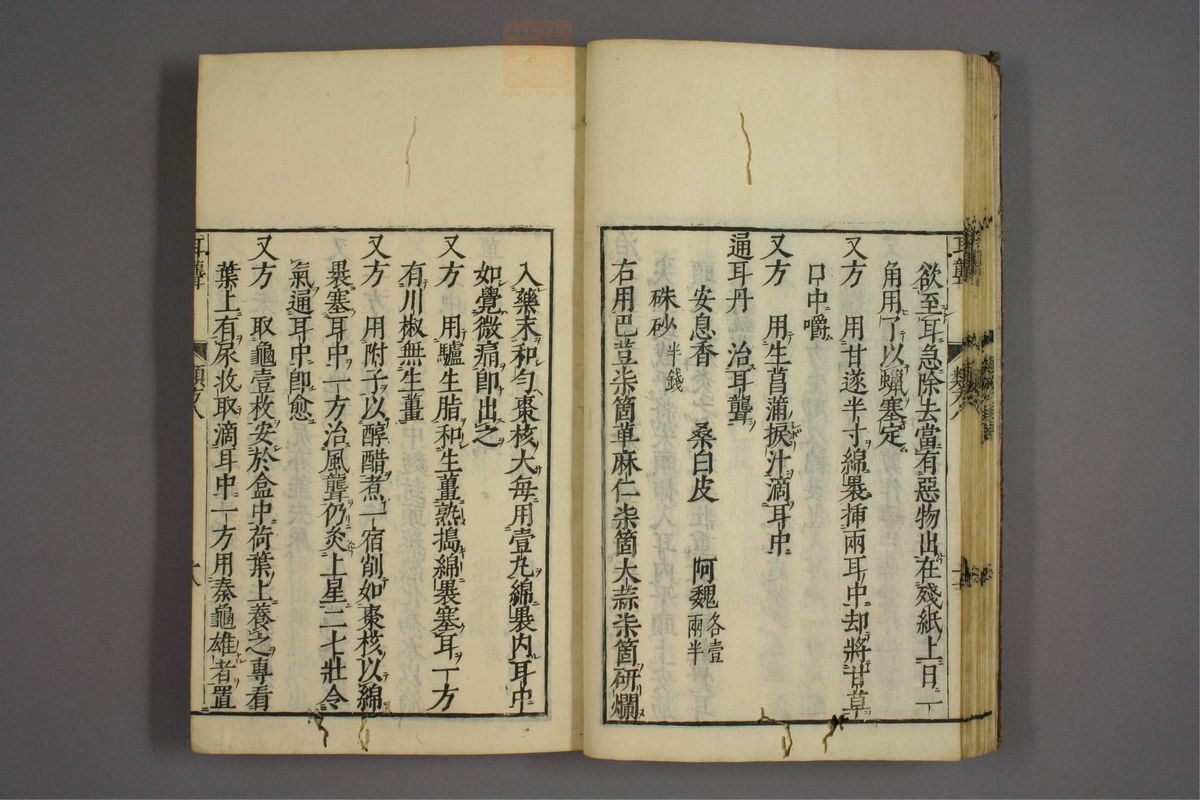 欲至耳急除去當有惡物出在殘紙上日一
角用了以蠟塞定
又方 用甘遂半寸綿褁揷兩耳中却將甘草
口中嚼
又方 用生菖蒲捩汁滴耳中
通耳丹 治耳聾
安息香 桑白皮 阿魏各壹兩半
硃砂半錢
右用巴荳柒箇萆麻仁柒箇大蒜柒箇硏爛
入藥末和勻棗核大每用壹丸綿褁內耳中
如覺微痛卽出之
又方 用驢生脂和生薑熟搗綿褁塞耳一方
有川椒無生薑
又方 用附子以醇醋煮一宿削如棗核以綿
褁塞耳中一方治風聾仍灸上星二七壯令
氣通耳中卽愈
又方 取龜壹枚安於盒中荷葉上養之專看
葉上有尿收取滴耳中一方用秦龜雄者置
耳聾 類 八